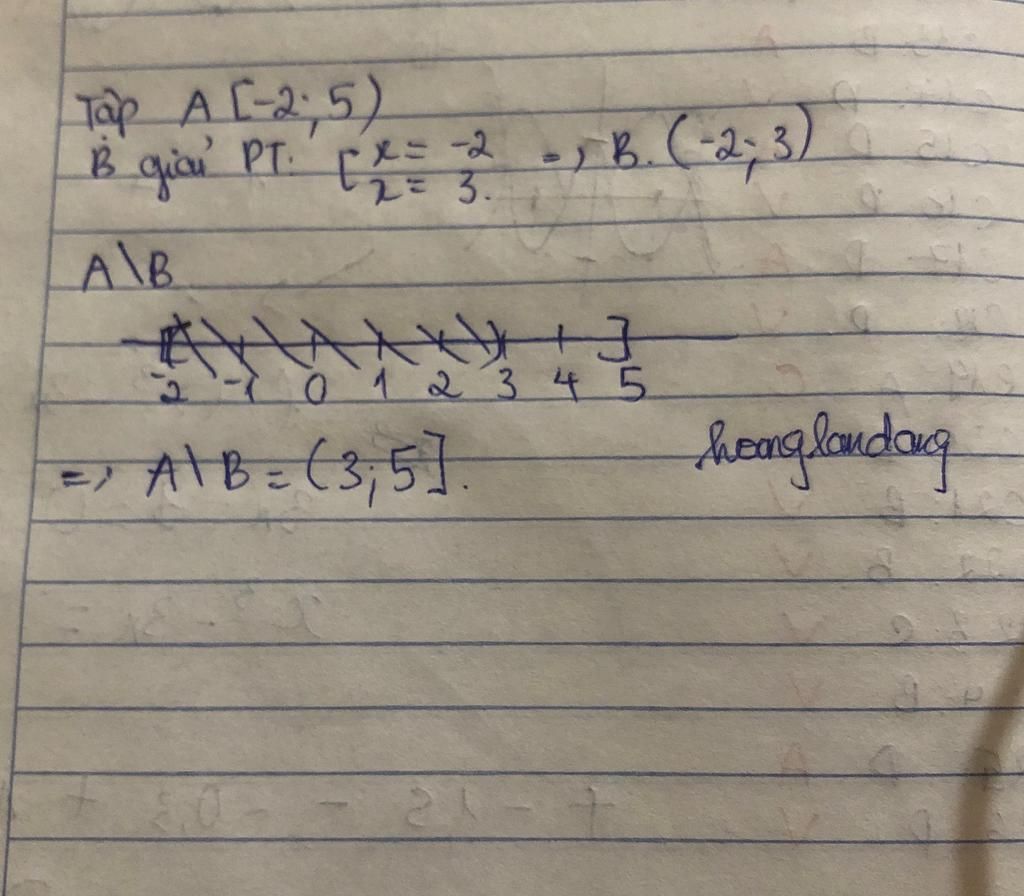 Tập A [-2; 5)
B giải PT. [x = -2 x = 3. => B. (-2; 3)
A\B
-2 -1 0 1 2 3 4 5
=> A\B = (3; 5].
hoanglandang